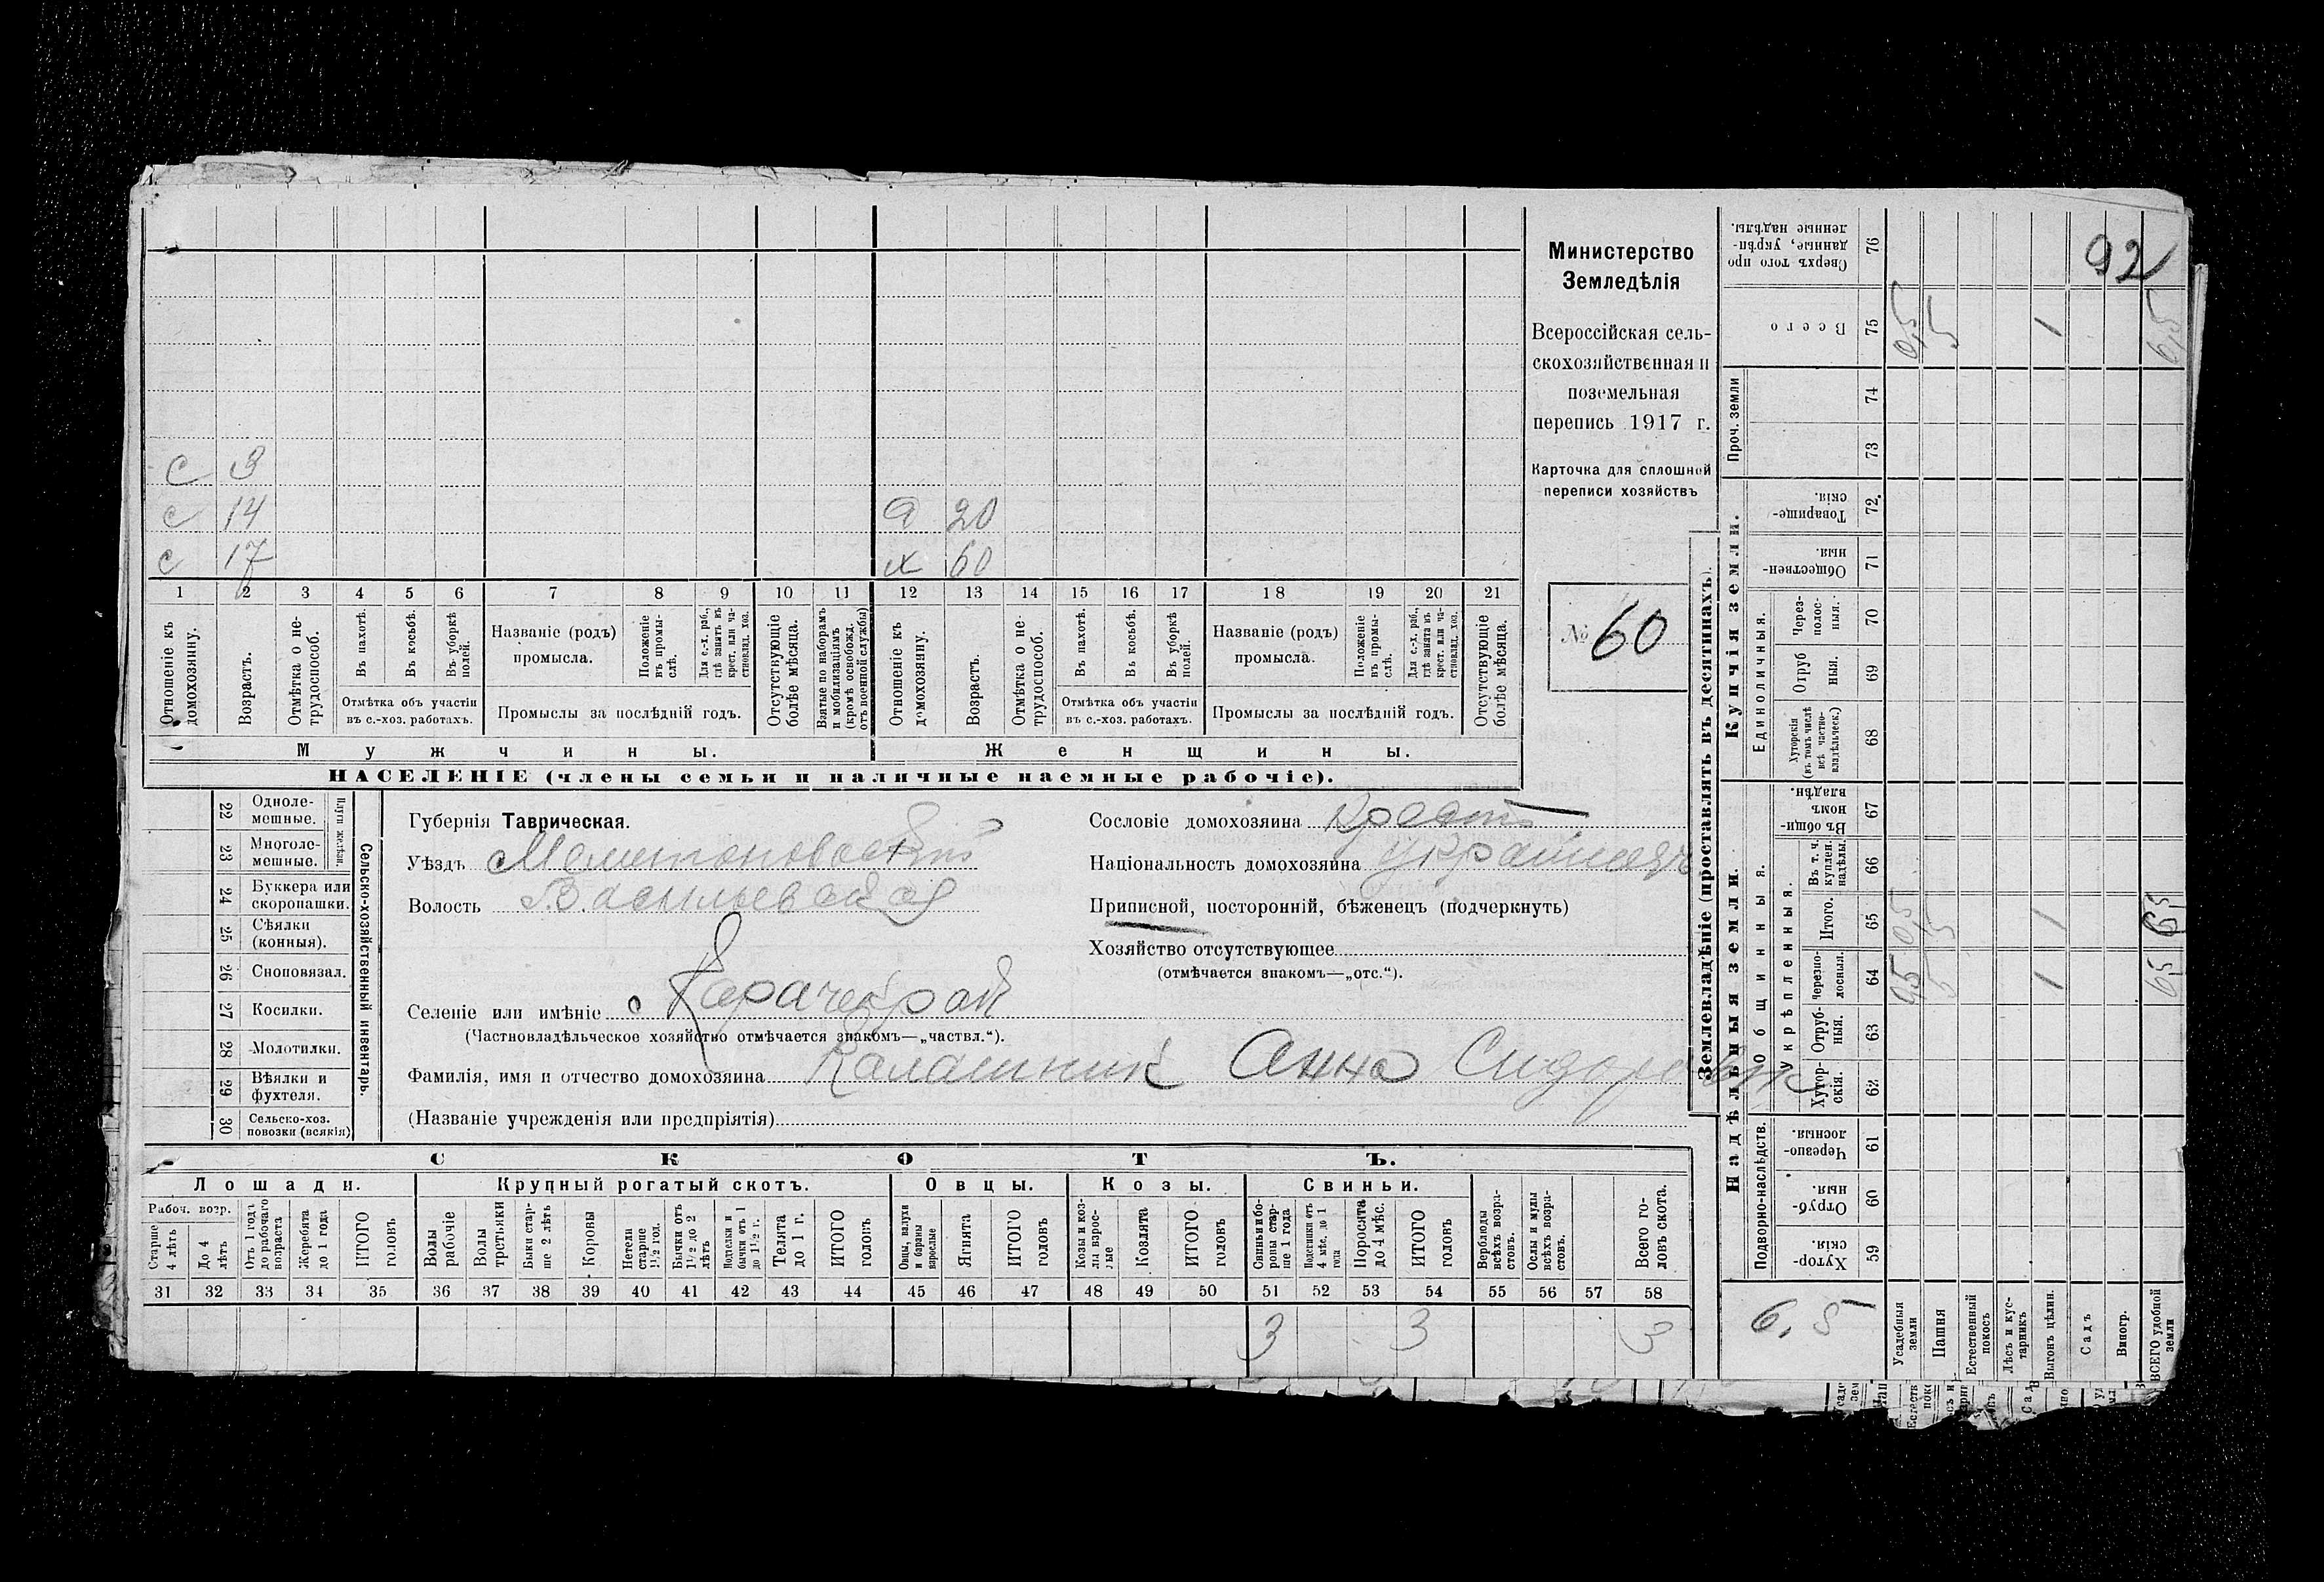 92
с 3
с 14
с 17
д 20
х 60
1 2 3 4 5 6 7 8 9 10 11 12 13 14 15 16 17 18 19 20 21
Отношеніе къ домохозяину.
Возрастъ.
Отмѣтка о нетрудоспособ.
Въ пахотѣ.
Въ косьбѣ.
Въ уборкѣ полей.
Отмѣтка объ участіи
въ с.-хоз. работахъ.
Названіе (родъ)
промысла.
Положеніе въ промыслѣ.
Для с.-х. раб., гдѣ занятъ въ крест. или частновлад. хоз.
Промыслы за послѣдній годъ.
Отсутствующіе болѣе мѣсяца.
Взятые по наборамъ и мобилизаціямъ (кромѣ освобожд. отъ военной службы)
Отношеніе къ домохозяину.
Возрастъ.
Отмѣтка о нетрудоспособ.
Въ пахотѣ.
Въ косьбѣ.
Въ уборкѣ полей.
Отмѣтка объ участіи
въ с.-хоз. работахъ.
Названіе (родъ)
промысла.
Положеніе въ промыслѣ.
Для с.-х. раб., гдѣ занята въ крест. или частновлад. хоз.
Промыслы за послѣдній годъ.
Отсутствующіе болѣе мѣсяца.
Мужчины.
Женщины.
НАСЕЛЕНІЕ (члены семьи и наличные наемные рабочіе).
Министерство
Земледѣлія
Всероссійская сель-
скохозяйственная и
поземельная
перепись 1917 г.
Карточка для сплошной
переписи хозяйствъ
№ 60
Сельско-хозяйственный инвентарь.
22 Одноле-
мешные.
23 Многоле-
мешные.
24 Буккера или
скоропашки.
25 Сѣялки
(конныя).
26 Сноповязал.
27 Косилки.
28 Молотилки.
29 Вѣялки и
фухтеля.
30 Сельско-хоз.
повозки (всякія)
Губернія Таврическая.
Уѣздъ Мелитопольскій
Волость Васильевская
Селеніе или имѣніе с Карачекрак
(Частновладѣльческое хозяйство отмѣчается знакомъ—„частвл.“).
Фамилія, имя и отчество домохозяина Калашник Анна Сидоровна
(Названіе учрежденія или предпріятія)
Сословіе домохозяина Крест
Національность домохозяина украинецъ
Приписной, посторонній, бѣженецъ (подчеркнуть)
Хозяйство отсутствующее
(отмѣчается знакомъ—„отс.“).
СКОТЪ.
Лошади. Крупный рогатый скотъ. Овцы. Козы. Свиньи.
Рабоч. возр.
Старше 4 лѣтъ
До 4 лѣтъ
Отъ 1 года до рабочаго возраста
Жеребята до 1 года
ИТОГО головъ
Волы рабочіе
Волы третьяки
Быки старше 2 лѣтъ
Коровы
Нетели старше 1½ год.
Бычки отъ 1½ до 2 лѣтъ
Подтелки и бычки отъ 1 до 1½ г.
Телята до 1 г.
ИТОГО головъ
Овцы, валухи и бараны взрослые
Ягнята
ИТОГО головъ
Козы и козлы взрослые
Козлята
ИТОГО головъ
Свиньи и боровы старше 1 года
Подсвинки отъ 4 мѣс. до 1 года
Поросята до 4 мѣс.
ИТОГО головъ
Верблюды всѣхъ возрастовъ.
Ослы и мулы всѣхъ возрастовъ.
Всего головъ скота.
31 32 33 34 35 36 37 38 39 40 41 42 43 44 45 46 47 48 49 50 51 52 53 54 55 56 57 58
3 3 3
Землевладѣніе (проставлять въ десятинахъ).
Надѣльныя земли.
Купчія земли.
Проч. земли
Сверхъ того проданные, укрѣпленные надѣлы. 76
Всего 75 0,5 5 1 6,5
74
73
Товарищескія. 72
Общественныя. 71
Единоличныя.
Черезполосныя. 70
Отрубныя. 69
Хуторскія (въ томъ числѣ всѣ частновладѣльческ.) 68
Общинныя.
Въ общинномъ владѣн. 67
Укрѣпленныя.
Въ т. ч. куплен. надѣлы. 66
Итого. 65 0,5 5 1 6,5
Черезполосныя. 64 0,5 5 1 6,5
Отрубныя. 63
Хуторскія. 62
Подворно-наслѣдств.
Черезполосныя. 61
Отрубныя. 60
Хуторскія. 59
6,5
Усадебныя земли
Пашня
Естественный покосъ
Лѣсъ и кустарникъ
Выгонъ цѣлин.
Садъ
Виногр.
ВСЕГО удобной земли